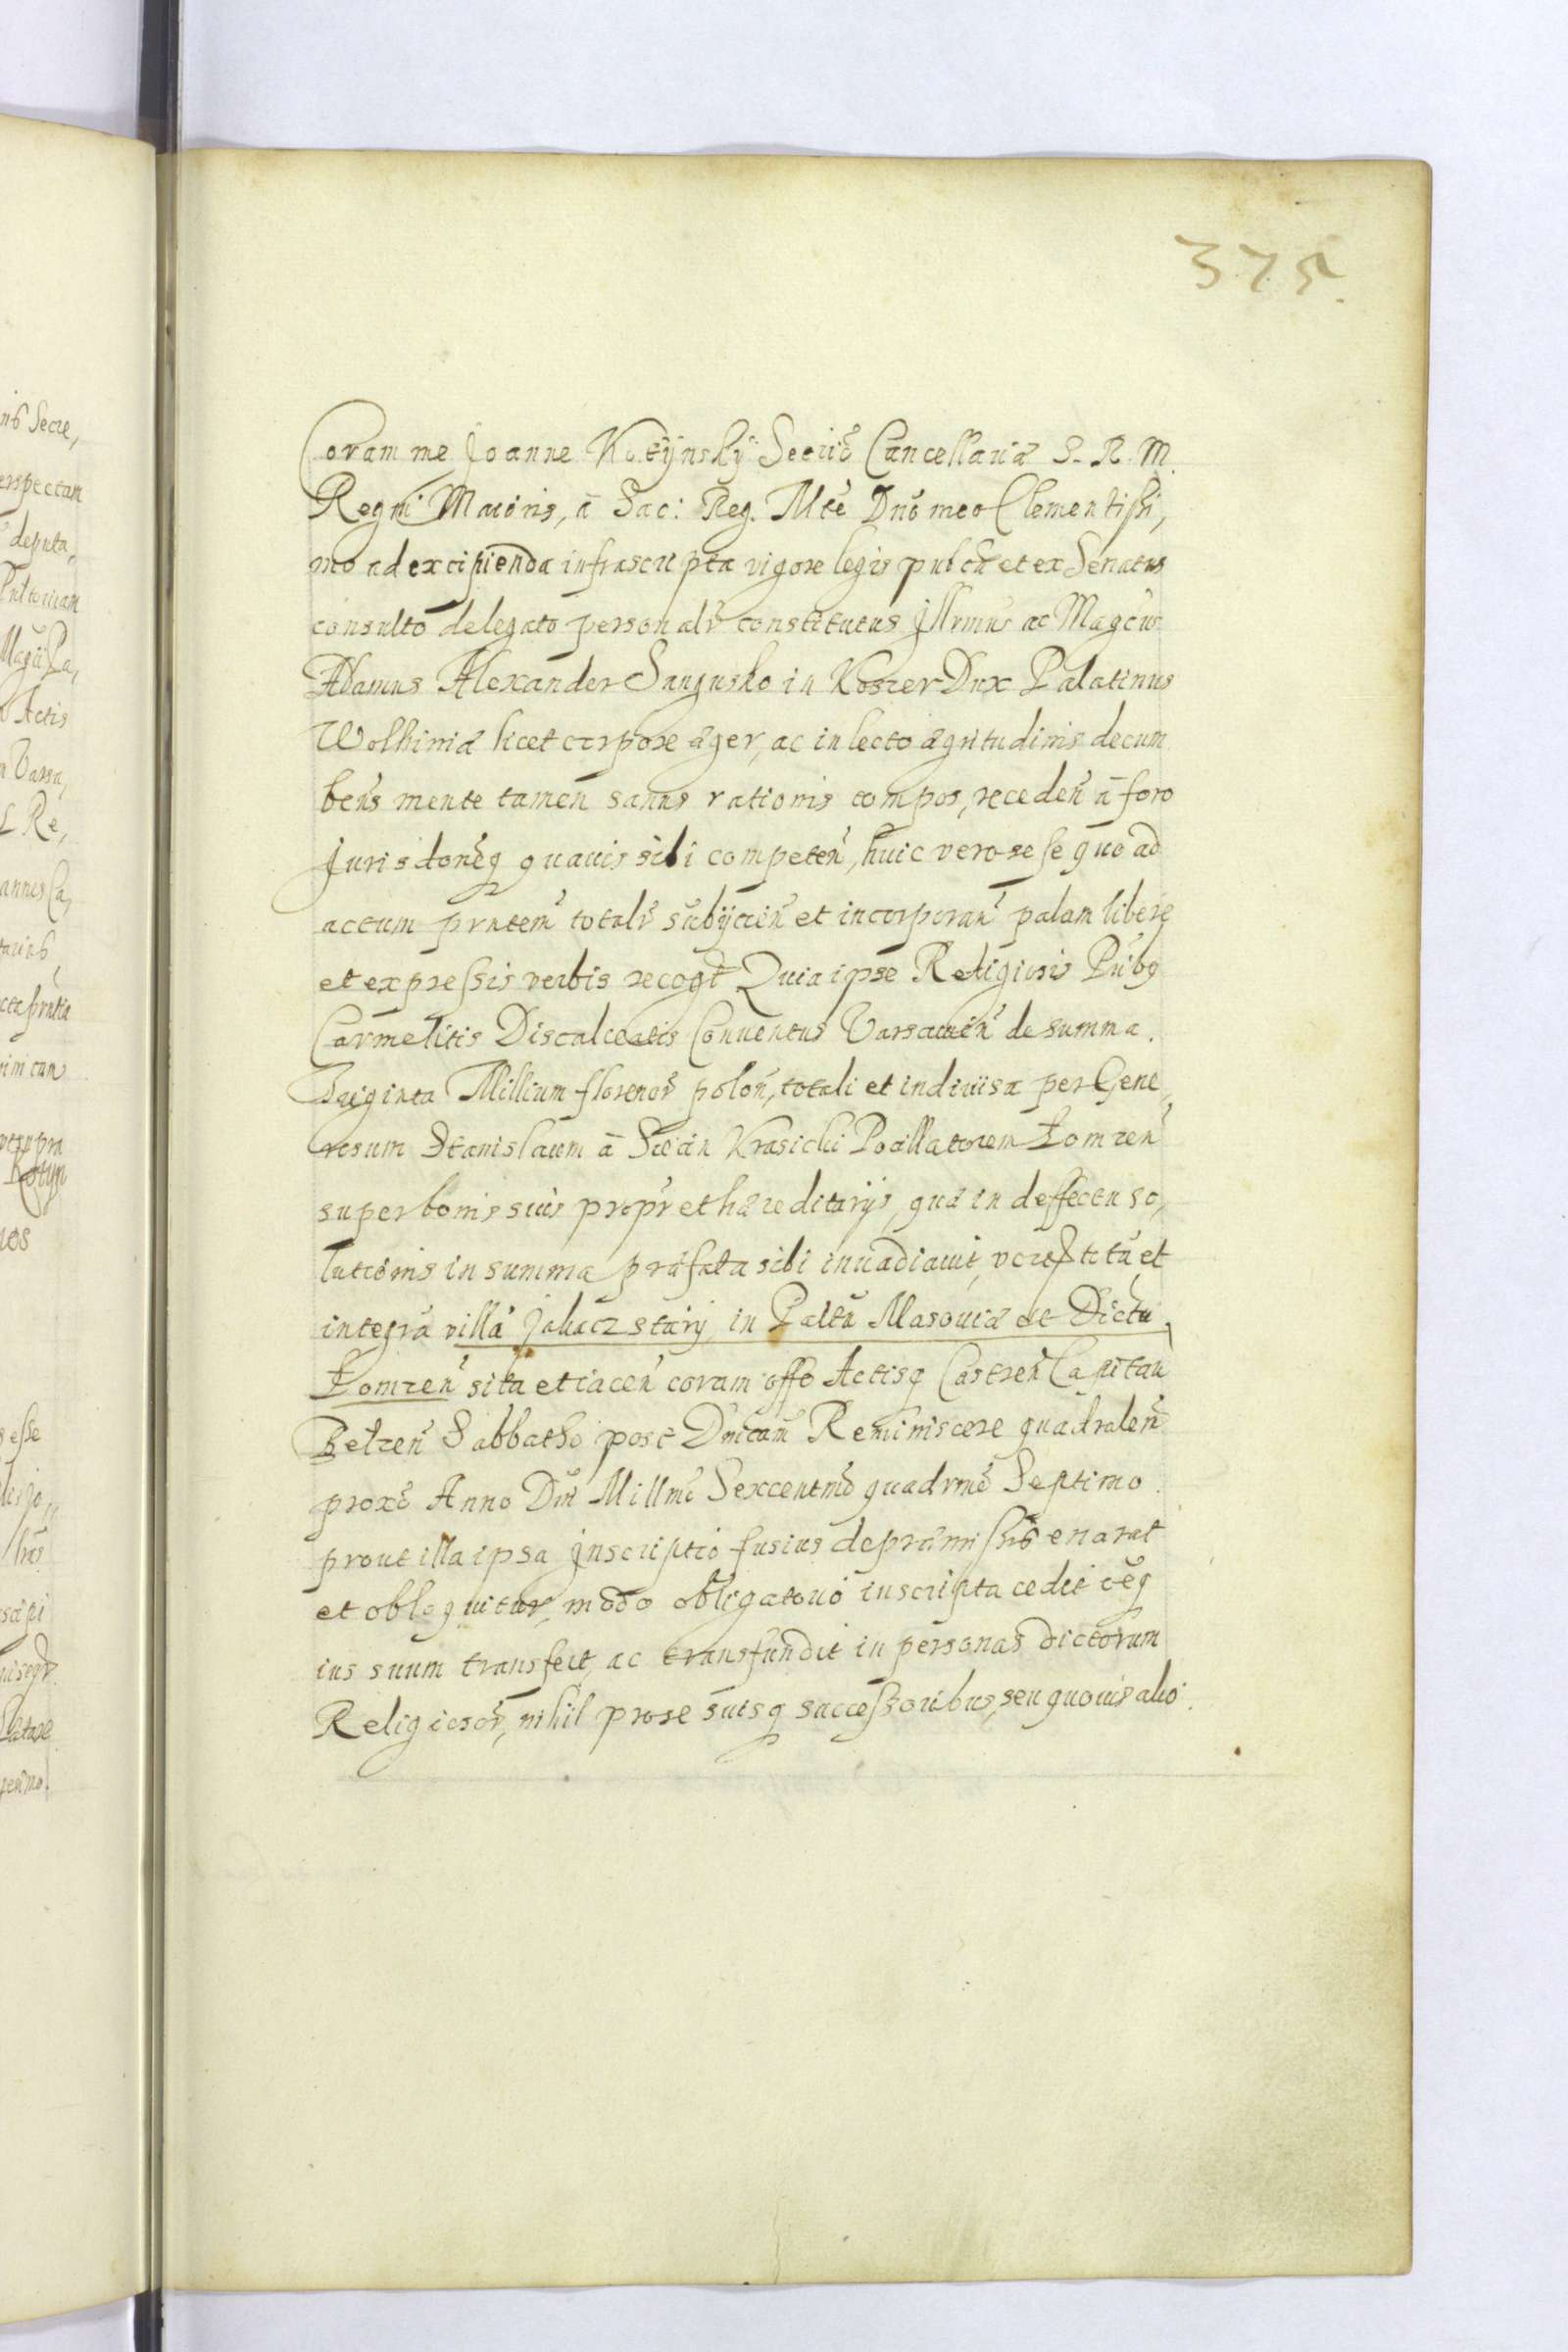 375.
Coram me Joanne Kotynsky Secrio Cancellariæ S. R. M.
Regni Maioris, à Sac: Reg. Mte Dno meo Clementissi,
mo ad excipienda infrascripta vigore legis publcæ et ex Senatus
consulto delegato personalr constitutus Jllrmus ac Magcus
Adamus Alexander Sangusko in Koszer Dux Palatinus
Wolhiniæ licet corpore æger, ac in lecto ægritudinis decum
bens mente tamen sanus rationis compos, receden à foro
Jurisdoneq quauis sibi competen, huic vero sese quo ad
actum prntem totalr subijcien et incorporan palam libere
et expressis verbis recogt Quia ipse Religiosis Pribg
Carmelitis Discalceatis Conuentus Varsauien de summa.
Triginta Millium florenor polon, totali et indiuisa per Gene,
rosum Stanislaum à Siecin Krasicki Pocillatorem Łomzen
super bonis suis propr et hæreditarijs, quæ in deffectu so,
lutionis in summa præfata sibi inuadiauit, vtote totâ, et
integrâ villâ Jakacz stary, in Paltu Masouiæ et Dictu,
Łomzen sita et iacen coram offo Actisq Castren Capitan
Belzen Sabbatho post Dnicam Reminiscere quadralen
proxo Anno Dni Millmo Sexcentmo quadrmo Septimo.
prout illa ipsa Jnscriptio fusius de præmissis enarat
et obloquitur, modo obligatorio inscripta cedit oeq
ius suum transfert, ac transfundit in personas dictorum
Religiosor, nihil pro se suisq successoribus, seu quouis alio.